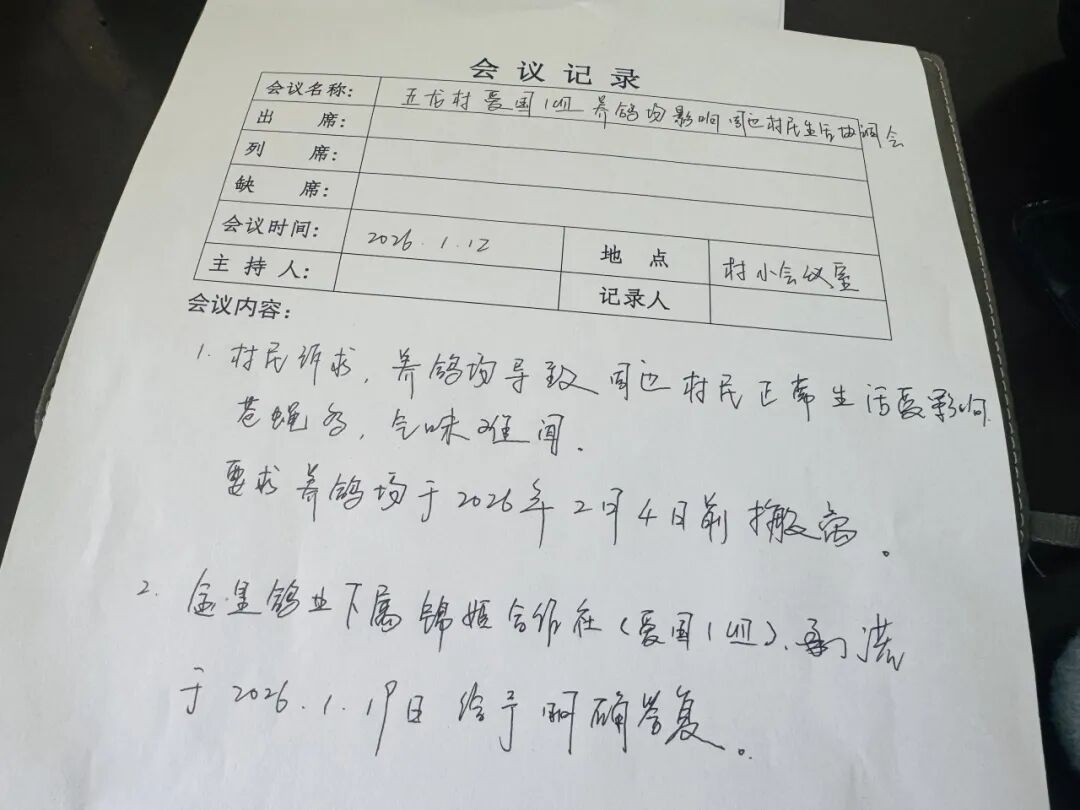 会议记录
会议名称： 五龙村爱国1组养鸽场影响周边村民生活协调会
出 席：
列 席：
缺 席：
会议时间： 2026.1.12 地 点 村小会议室
主 持 人： 记录人
会议内容：
1. 村民诉求，养鸽场导致周边村民正常生活受影响.
苍蝇多，气味难闻.
要求养鸽场于2026年2月4日前搬离。
2. 金星鸽业下属锦 合作社（爱国1组）、 洪
于2026.1.19日给予明确答复。